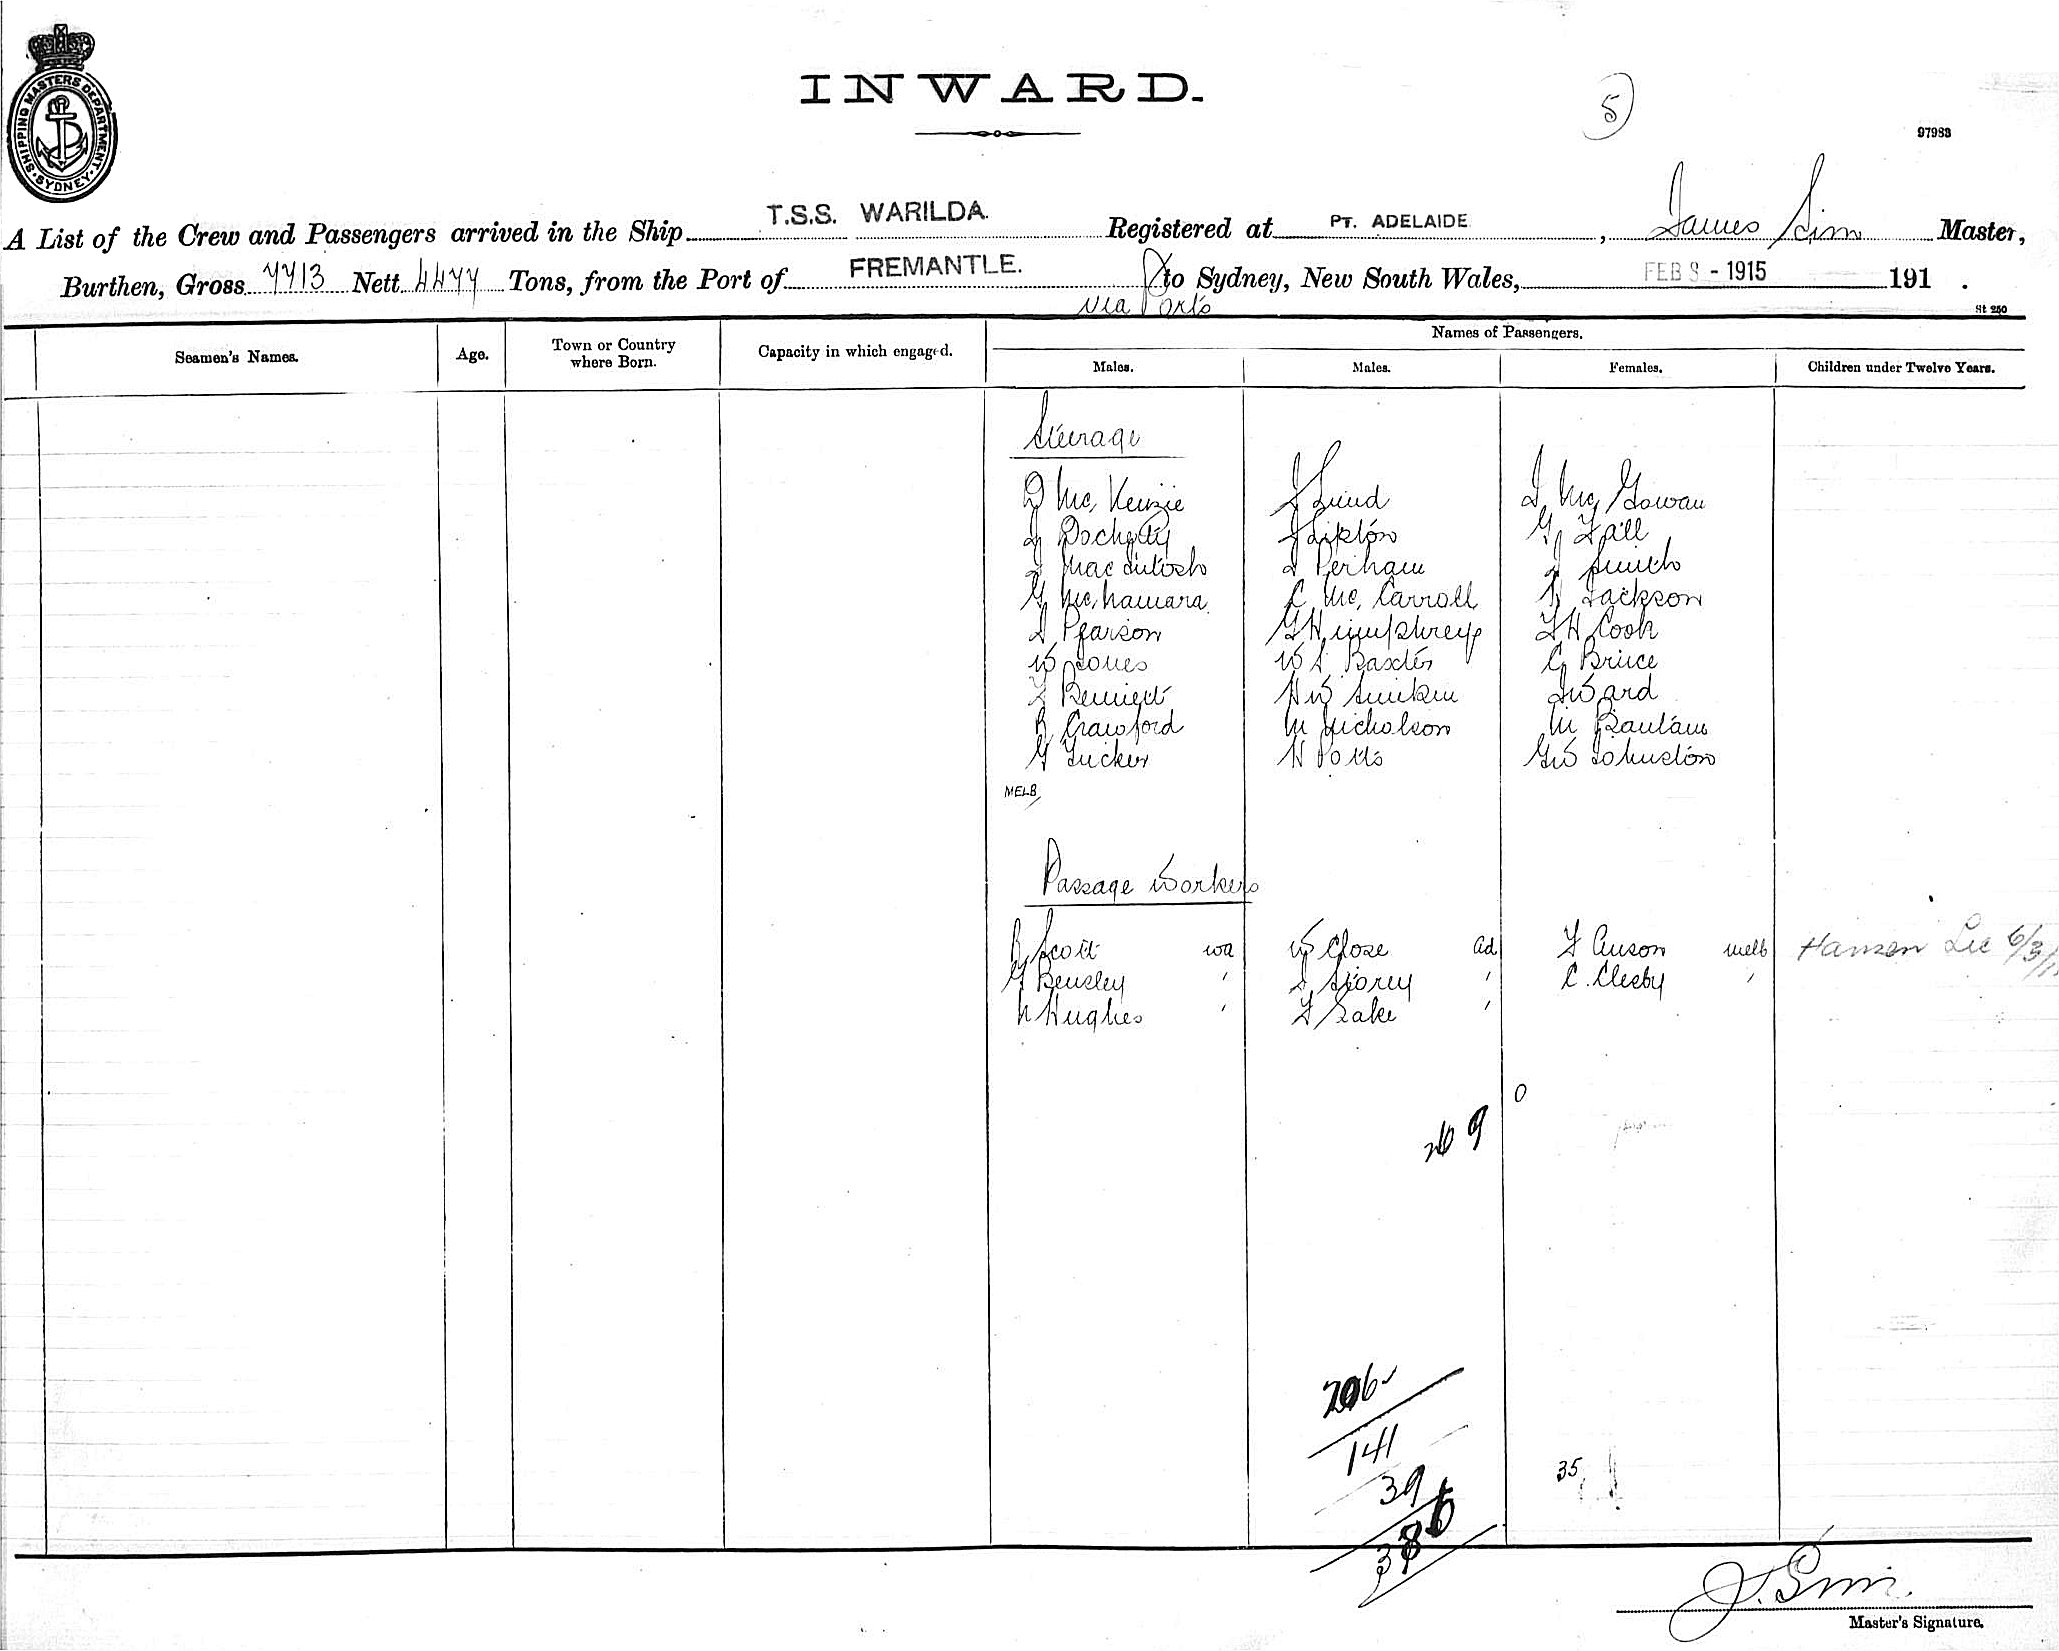 INWARD.
5
97983
SHIPPING MASTERS DEPARTMENT SYDNEY
A List of the Crew and Passengers arrived in the Ship T.S.S. WARILDA. Registered at PT. ADELAIDE, James Sim Master,
Burthen, Gross 7713 Nett 4477 Tons, from the Port of FREMANTLE. via Ports to Sydney, New South Wales, FEB 8 - 1915 191 .
St 250
Seamen's Names. Age. Town or Country where Born. Capacity in which engaged. Names of Passengers.
Males. Males. Females. Children under Twelve Years.
Steerage
D McKenzie Lund McGowan
J Docherty Lipton G Hall
J MacIntosh Perham J Smith
G McNamara C McCarroll Jackson
Pearson G Humphreys H Cook
W Jones W S Baxter C Bruce
Bennett H W Ward
R Crawford M Nicholson M Bantam
G Tucker H Potts G W Johnston
MELB
Passage Workers
R Scott WA W Close Ad F Anson Melb Hansen Lee 6/3/
G Bensley ' S Storey ' C. Clesby '
N Hughes ' F Lake '
0
9
206
141
39
35
386
J. Sim.
Master's Signature.